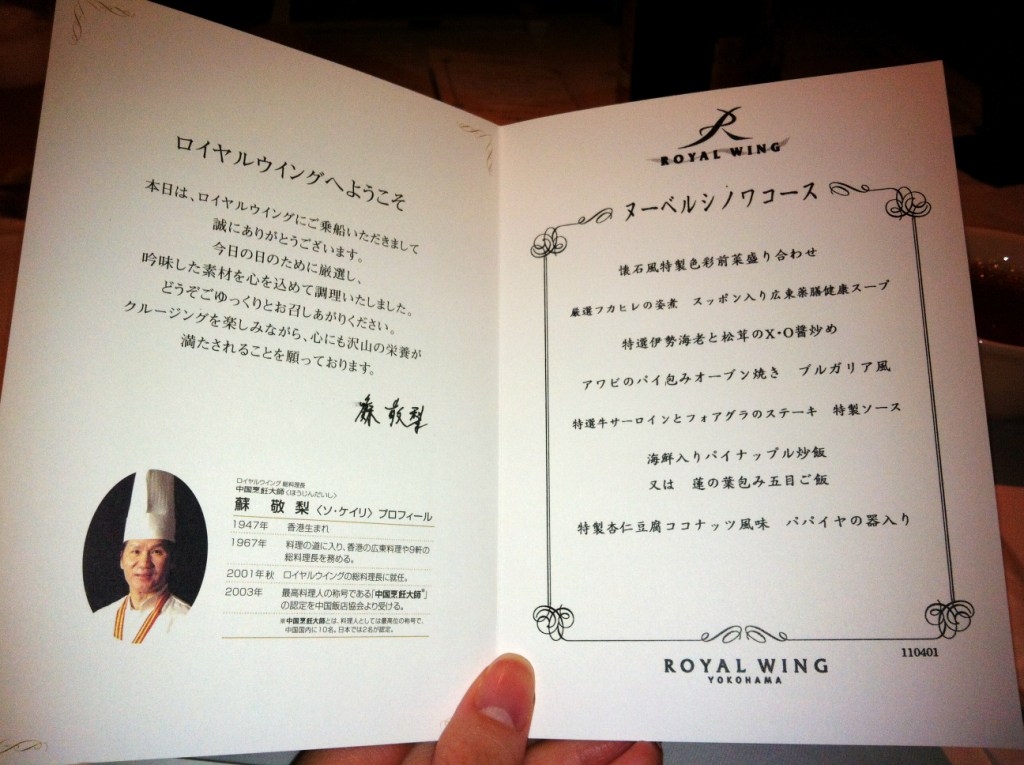 ロイヤルウイングへようこそ
本日は、ロイヤルウイングにご乗船いただきまして
誠にありがとうございます。
今日の日のために厳選し、
吟味した素材を心を込めて調理いたしました。
どうぞごゆっくりとお召しあがりください。
クルージングを楽しみながら、心にも沢山の栄養が
満たされることを願っております。
蘇敬梨
ロイヤルウイング 総料理長
中国烹飪大師〈ほうじんだいし〉
蘇 敬 梨〈ソ・ケイリ〉プロフィール
1947年 香港生まれ
1967年 料理の道に入り、香港の広東料理や9軒の
総料理長を務める。
2001年秋 ロイヤルウイングの総料理長に就任。
2003年 最高料理人の称号である「中国烹飪大師※」
の認定を中国飯店協会より受ける。
※中国烹飪大師とは、料理人としては最高位の称号で、
中国国内に10名。日本では2名が認定。
ROYAL WING
ヌーベルシノワコース
懐石風特製色彩前菜盛り合わせ
厳選フカヒレの姿煮 スッポン入り広東薬膳健康スープ
特選伊勢海老と松茸のX・O醤炒め
アワビのパイ包みオーブン焼き ブルガリア風
特選牛サーロインとフォアグラのステーキ 特製ソース
海鮮入りパイナップル炒飯
又は 蓮の葉包み五目ご飯
特製杏仁豆腐ココナッツ風味 パパイヤの器入り
110401
ROYAL WING
YOKOHAMA